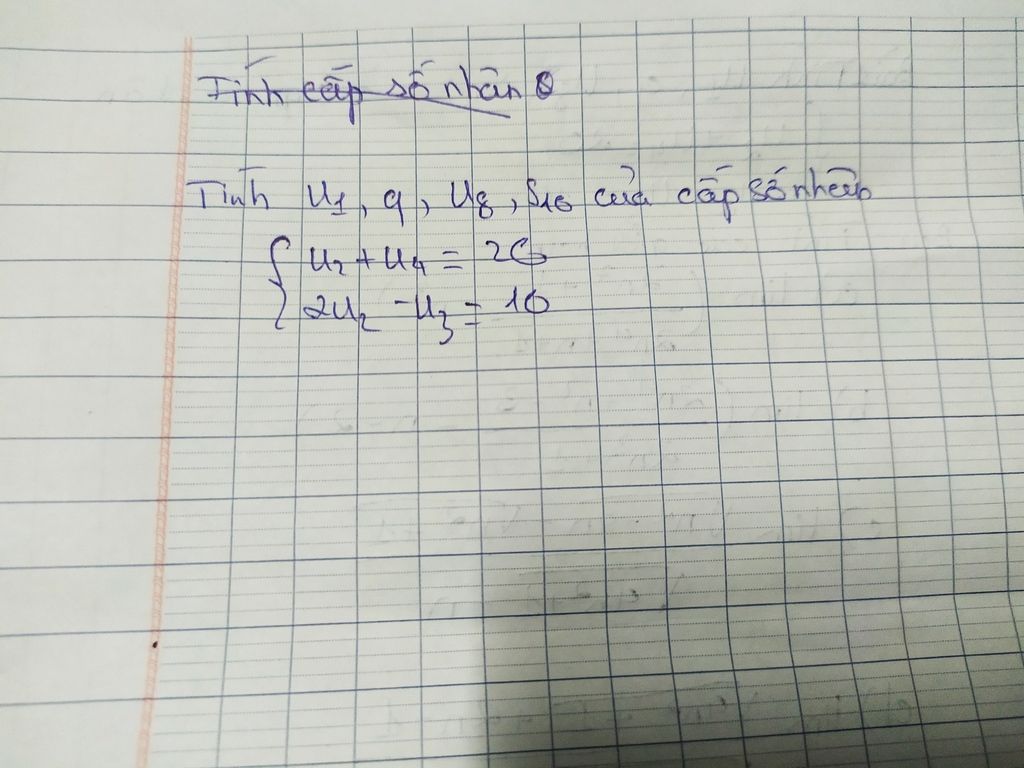 Tính cấp số nhân
Tính u₁, q, u₈, S₁₀ của cấp số nhân
{ u₂ + u₄ = 20
2u₂ - u₃ = 10